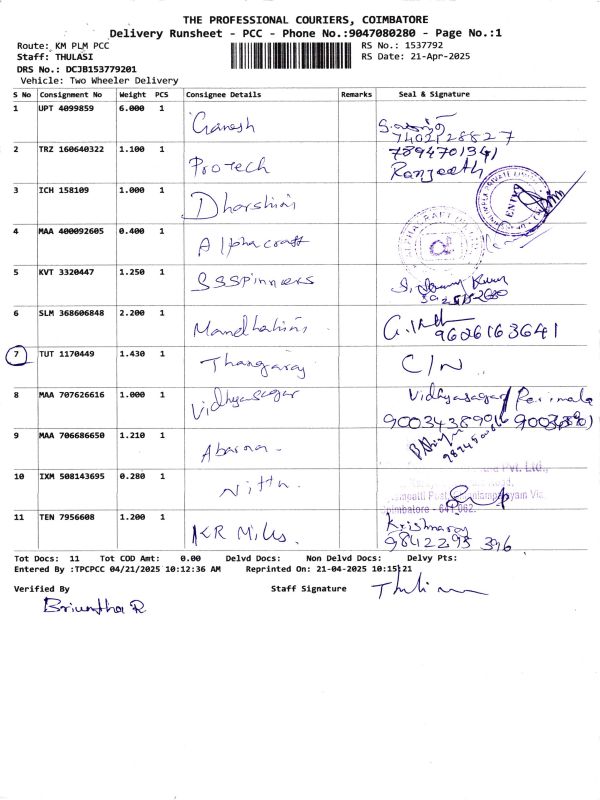 THE PROFESSIONAL COURIERS, COIMBATORE
Delivery Runsheet - PCC - Phone No.:9047080280 - Page No.:1
Route: KM PLM PCC RS No.: 1537792
Staff: THULASI RS Date: 21-Apr-2025
DRS No.: DCJB153779201
Vehicle: Two Wheeler Delivery
S No Consignment No Weight PCS Consignee Details Remarks Seal & Signature
1 UPT 4099859 6.000 1 Ganesh
2 TRZ 160640322 1.100 1 Protech 7894701341 Ranjeeth
3 ICH 158109 1.000 1 Dharshini
4 MAA 400092605 0.400 1 Alphacraft
5 KVT 3320447 1.250 1 SSSpinners
6 SLM 368606848 2.200 1 9626163641
7 TUT 1170449 1.430 1 Thangaraj C/N
8 MAA 707626616 1.000 1 Vidhyasagar Vidhyasagar
9 MAA 706686650 1.210 1 Abarna
10 IXM 508143695 0.280 1 Nittu Pvt. Ltd.,
Coimbatore - 641 062.
11 TEN 7956608 1.200 1 KR Mills Krishnaraj
9842295 396
Tot Docs: 11 Tot COD Amt: 0.00 Delvd Docs: Non Delvd Docs: Delvy Pts:
Entered By :TPCPCC 04/21/2025 10:12:36 AM Reprinted On: 21-04-2025 10:15:21
Verified By Staff Signature